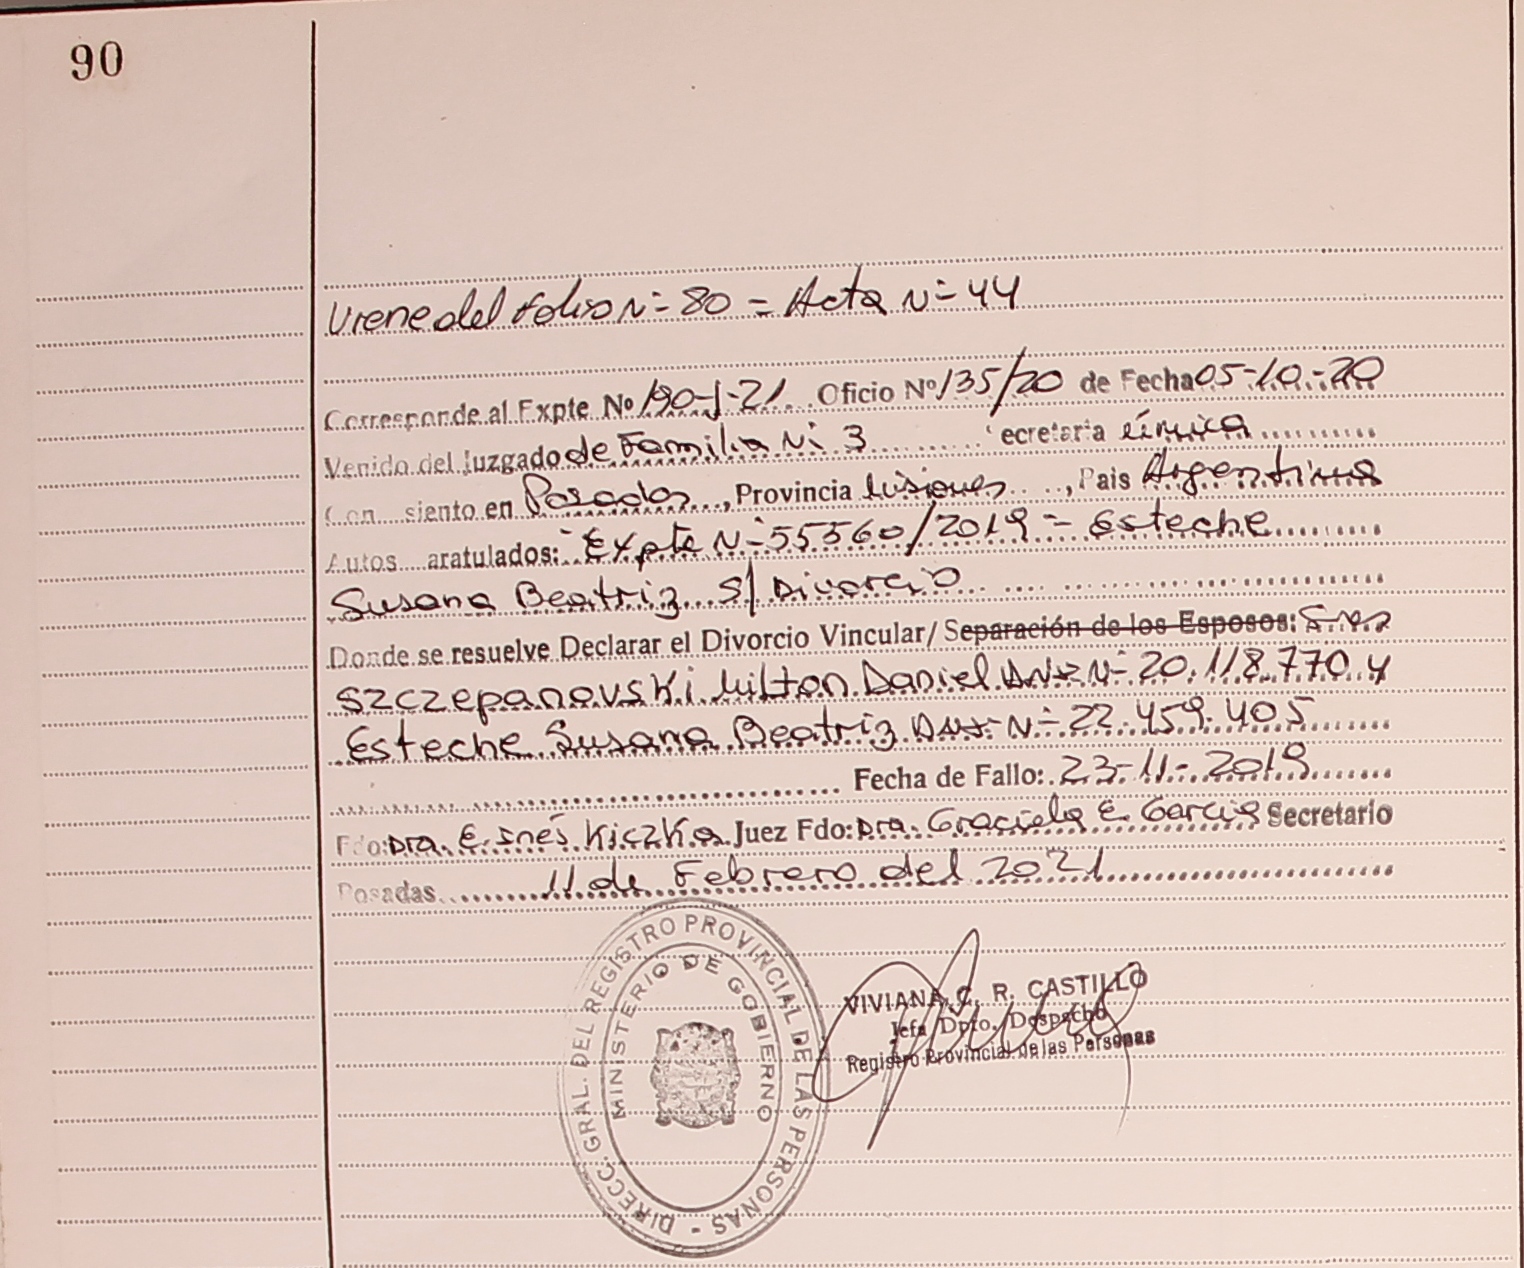 90
Viene del folio N= 80 = Acta N= 44
Corresponde al Expte Nº 190-J-21 Oficio Nº 135/20 de Fecha 05-10-20
Venido del Juzgado de Familia N: 3 ecretaria única
Con siento en Posadas, Provincia Misiones, Pais Argentina
Autos aratulados: Expte N=55560/2019 = Esteche
Susana Beatriz s/ Divorcio
Donde se resuelve Declarar el Divorcio Vincular/ Separación de los Esposos:
Szczepanovski Milton Daniel DNI N= 20.118.770 y
Esteche Susana Beatriz DNI N= 22.459.405
Fecha de Fallo: 23-11-2019
Fdo: Dra. E. Inés Kiczka Juez Fdo: Dra. Graciela E. Garcia Secretario
Posadas 11 de Febrero del 2021
DIRECC. GRAL. DEL REGISTRO PROVINCIAL DE LAS PERSONAS -
MINISTERIO DE GOBIERNO
VIVIANA C. R. CASTILLO
Jefa Dpto. Despacho
Registro Provincial de las Personas